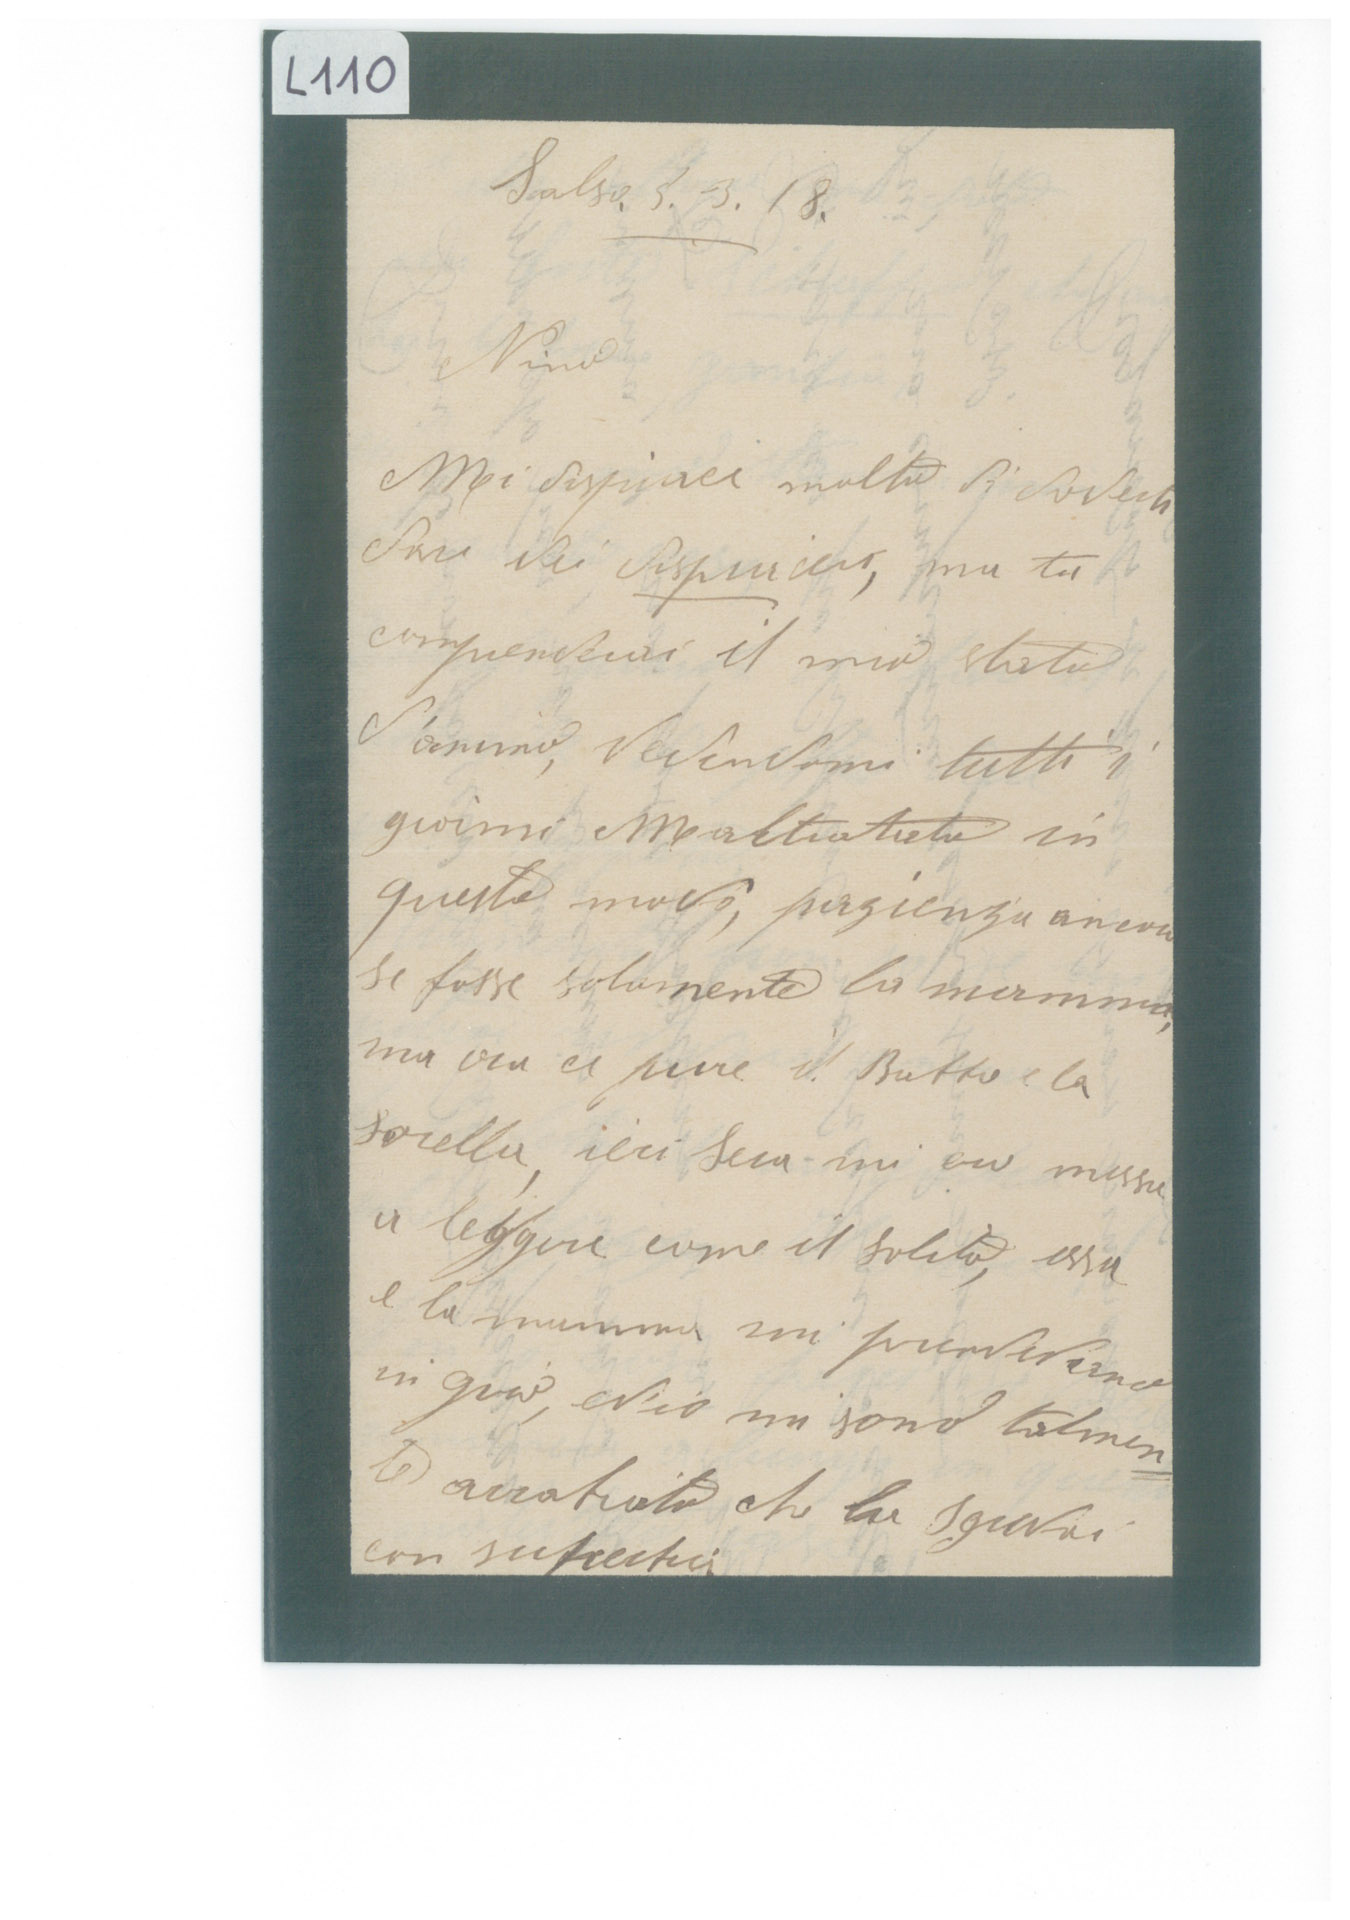 L110
Salso. 5. 3. 18.
Nino
Mi dispiace molto di doverti
dare dei dispiaceri, ma tu
comprenderai il mio stato
d'animo, vedendomi tutti i
giorni Maltratata in
questo modo, pazienza ancora
se fosse solamente la mamma,
ma ora ce pure il Batto e la
Sorella, ieri Sera mi ero messa
a leggere come il solito, essa
e la mamma mi prendevano
in giro, ed io mi sono talmen
te arrabiata che la sgridai
con